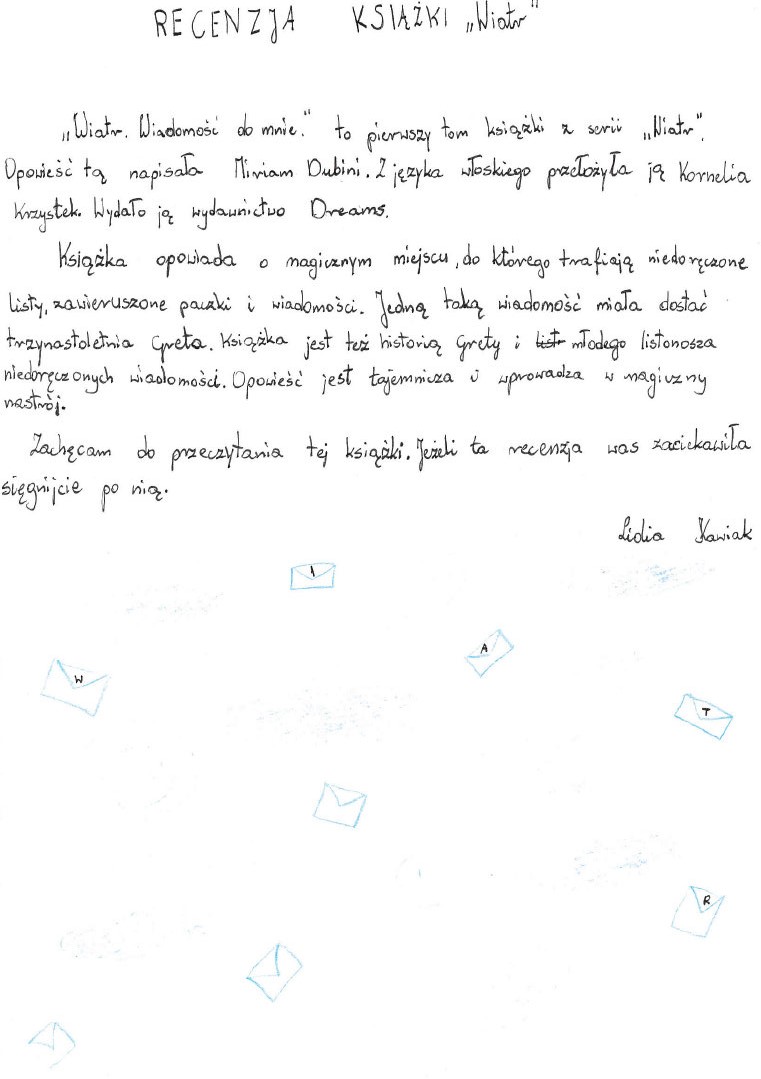 RECENZJA KSIĄŻKI „Wiatr"
„Wiatr. Wiadomość do mnie." to pierwszy tom książki z serii „Wiatr".
Opowieść tą napisała Miriam Dubini. Z języka włoskiego przełożyła ją Kornelia
Krzystek. Wydało ją wydawnictwo Dreams.
Książka opowiada o magicznym miejscu, do którego trafiają niedoręczone
listy, zawieruszone paczki i wiadomości. Jedną taką wiadomość miała dostać
trzynastoletnia Greta. Książka jest też historią Grety i list młodego listonosza
niedoręczonych wiadomości. Opowieść jest tajemnicza i wprowadza w magiczny
nastrój.
Zachęcam do przeczytania tej książki. Jeżeli ta recenzja was zaciekawiła
sięgnijcie po nią.
Lidia Kawiak
I
A
W
T
R